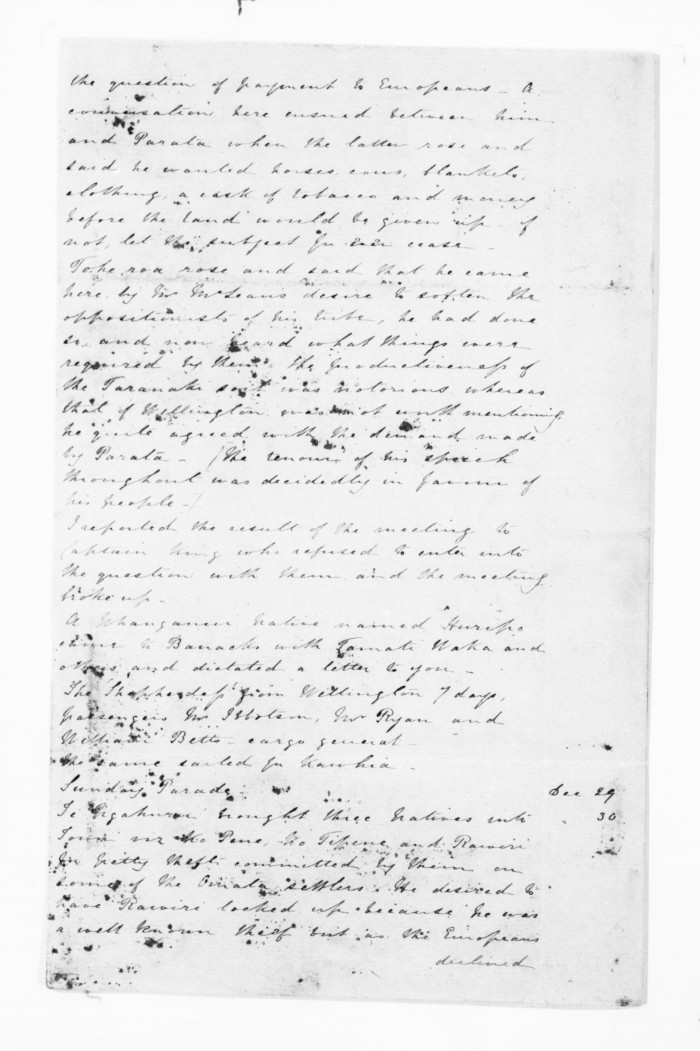 the question of payment to Europeans - A
conversation here ensued between him
and Parata when the latter rose and
said he wanted horses, cows, blankets,
clothing, a cask of tobacco and money
before the land would be given up - if
not, let the subject for ever cease -
Tohe roa rose and said that he came
here by Mr McLeans desire to soften the
oppositionists of his tribe, he had done
so, and now heard what things were
required by them. The productiveness of
the Taranaki soil was notorious, whereas
that of Wellington was not worth mentioning,
he quite agreed with the demand made
by Parata - (The tenour of his speech
throughout was decidedly in favour of
his people -)
I reported the result of the meeting to
Captain King who refused to enter into
the question with them and the meeting
broke up -
A Whanganui Native named Huripo
came to Barracks with Tamati Waka and
others and dictated a letter to you -
The Shepherdess from Wellington 7 days,
passengers Mr Ibbotson, Mr Ryan and
William Betts - cargo general -
the same sailed for Kawhia -
Sunday Parade - Dec 29
Te Ngahuru brought three Natives into " 30
Town viz Ko Pene, Ko Tipene and Rawiri
for petty thefts committed by them on
some of the Omata settlers. He desired to
have Rawiri locked up because he was
a well known thief but as the Europeans
declined